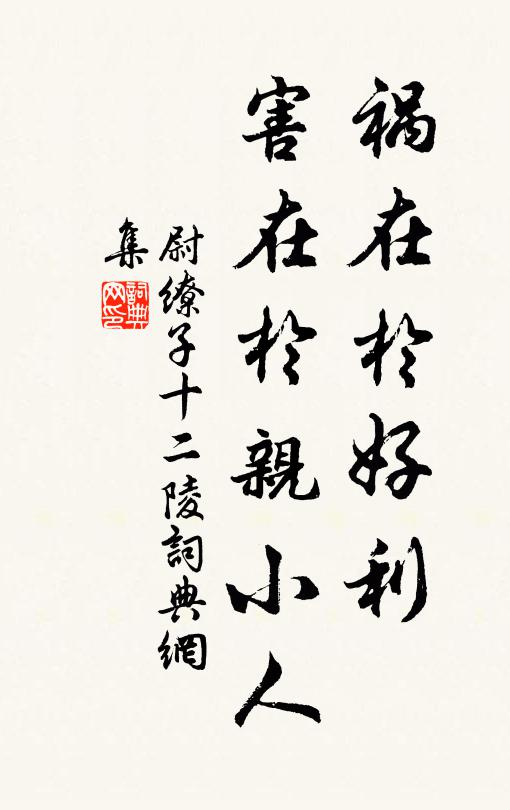 祸在於好利
害在於親小人
尉繚子十二陵詞典網
集
詞典
网印